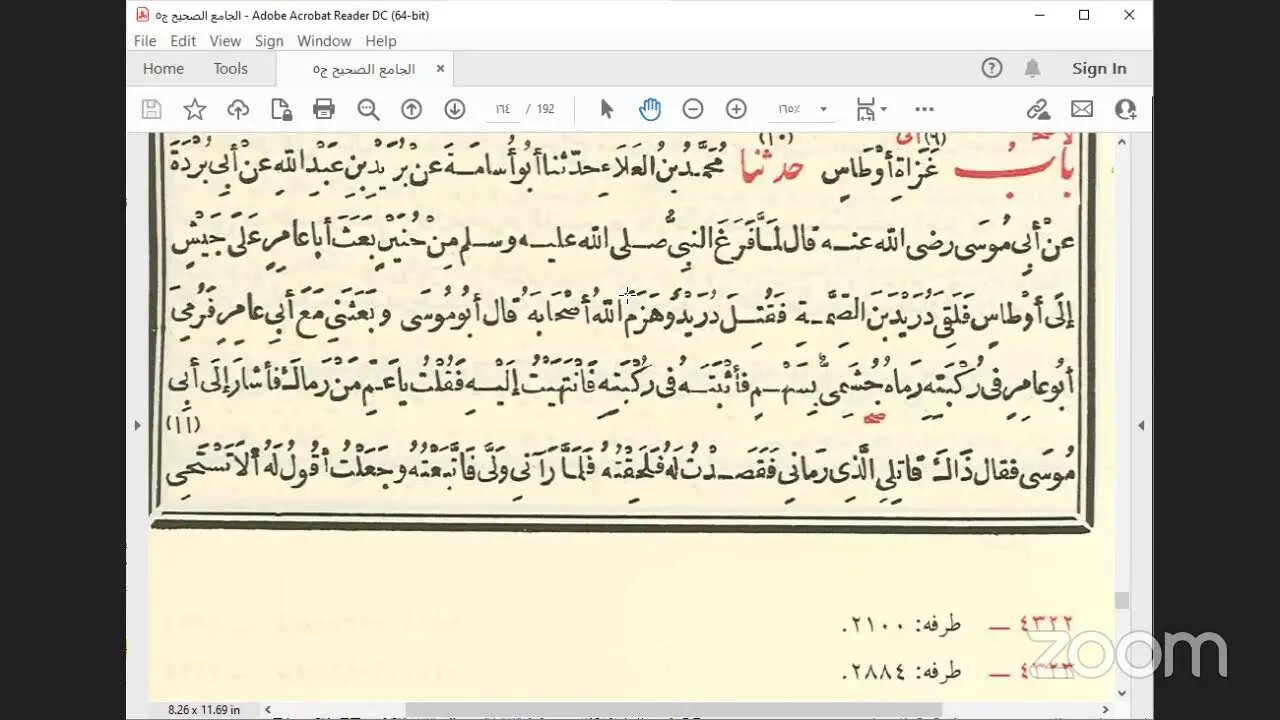 الجامع الصحيح ج٥ - Adobe Acrobat Reader DC (64-bit)
File Edit View Sign Window Help
Home Tools الجامع الصحيح ج٥ × Sign In
١٦٤ / 192 ١٦٥٪
(٦) (١٠)
بابُ غَزَاةِ أَوْطَاسٍ حدثنا مُحَمَّدُ بْنُ العَلَاءِ حدّثنا أَبُو أُسَامَةَ عَنْ بُرَيْدِ بْنِ عَبْدِ اللهِ عَنْ أَبِي بُرْدَةَ
عَنْ أَبِي مُوسَى رضى الله عنه قال لَمَّا فَرَغَ النبيُّ صلى الله عليه وسلم مِنْ حُنَيْنٍ بَعَثَ أَبا عامِرٍ عَلَى جَيْشٍ
إِلَى أَوْطاسٍ فَلَقِىَ دُرَيْدَ بْنَ الصِّمَّةِ فَقُتِلَ دُرَيْدٌ وَهَزَمَ اللهُ أَصْحَابَهُ قال أَبُو مُوسَى وبَعَثَنِى مَعَ أَبِي عامِرٍ فَرُمِىَ
أبُو عامِرٍ فى رُكْبَتِهِ رَماهُ جُشَمِىٌّ بِسَهْمٍ فَأَثْبَتَهُ فى رُكْبَتِهِ فَانْتَهَيْتُ إِلَيْهِ فَقُلْتُ يا عَمِّ مَنْ رَماكَ فأشار إِلَى أَبِى
صح (١١)
مُوسَى فقال ذَاكَ قاتِلِى الَّذِى رَمانِى فَقَصَدْتُ لَهُ فَلَحِقْتُهُ فَلَمَّا رَآنِى وَلَّى فَاتَّبَعْتُهُ وجَعَلْتُ أَقُولُ لَهُ أَلاَ تَسْتَحِى
٤٣٢٢ — طرفه: ٢١٠٠.
٤٣٢٣ — طرفه: ٢٨٨٤.
zoom
8.26 x 11.69 in